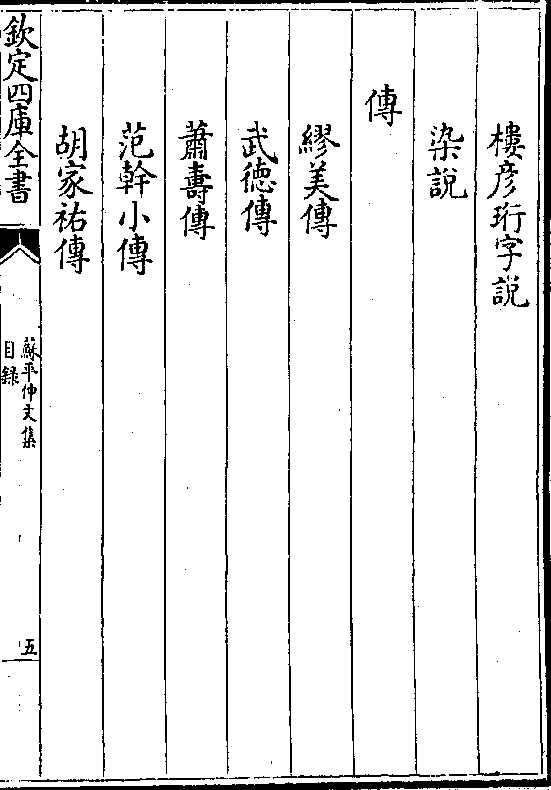 樓彦珩字説
染説
傳
繆美傳
武徳傳
蕭壽傳
范幹小傳
胡家祐傳
欽定四庫全書
蘇平仲文集
目錄
五